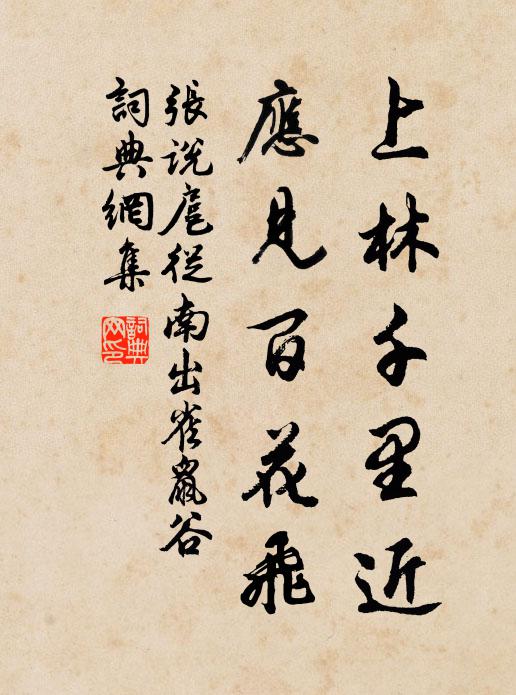 上林千里近
應見百花飛
張說扈從南出雀鼠谷
詞典網集
詞典網印